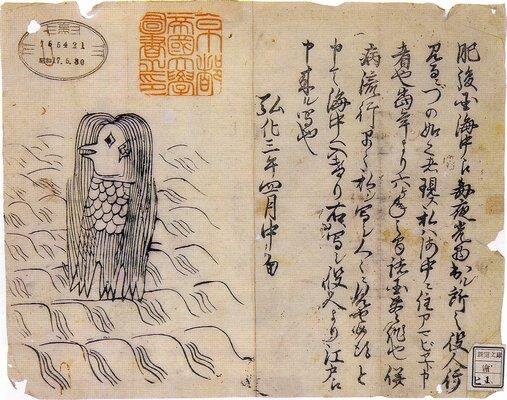 肥後国海中え毎夜光物出ル所之役人行
見るニづの如之者現ス私ハ海中ニ住アマビヱト申
者也当年より六ヶ年之間諸国豊作也併
病流行早々私ヲ写シ人々ニ見セ候得と
申て海中へ入けり右写シ役人より江戸え
申来ル写也
弘化三年四月中旬
京都
帝國大學
圖書之印
165421
昭和17.5.30
新聞文庫
ヒ 1